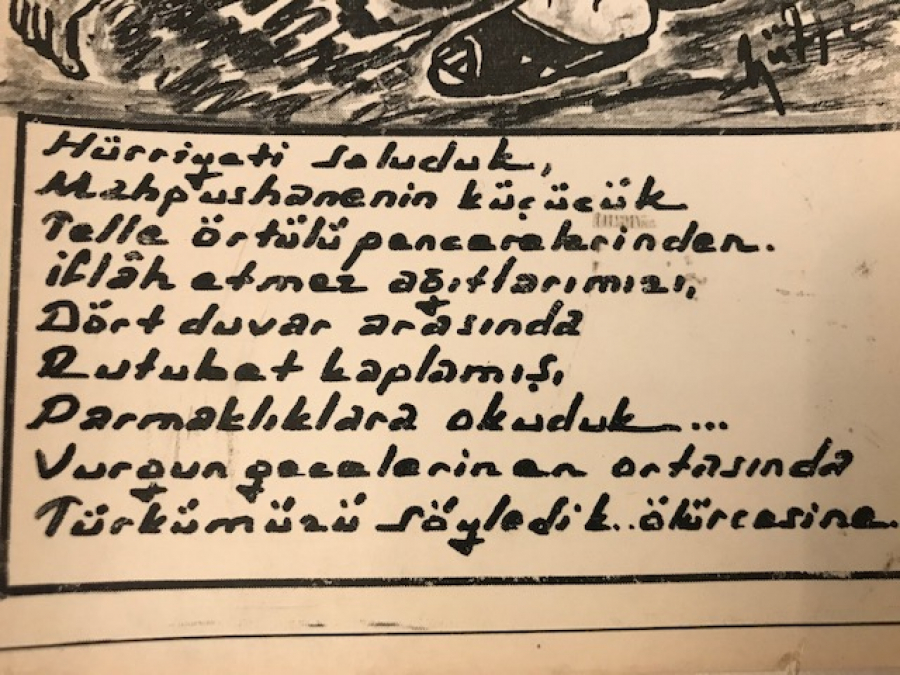 Hürriyeti soluduk,
Mahpushanenin küçücük
Telle örtülü pencerelerinden.
iflâh etmez ağıtlarımızı,
Dört duvar arasında
Rutubet kaplamış,
Parmaklıklara okuduk...
Vurgun gecelerin en ortasında
Türkümüzü söyledik..ölürcesine.